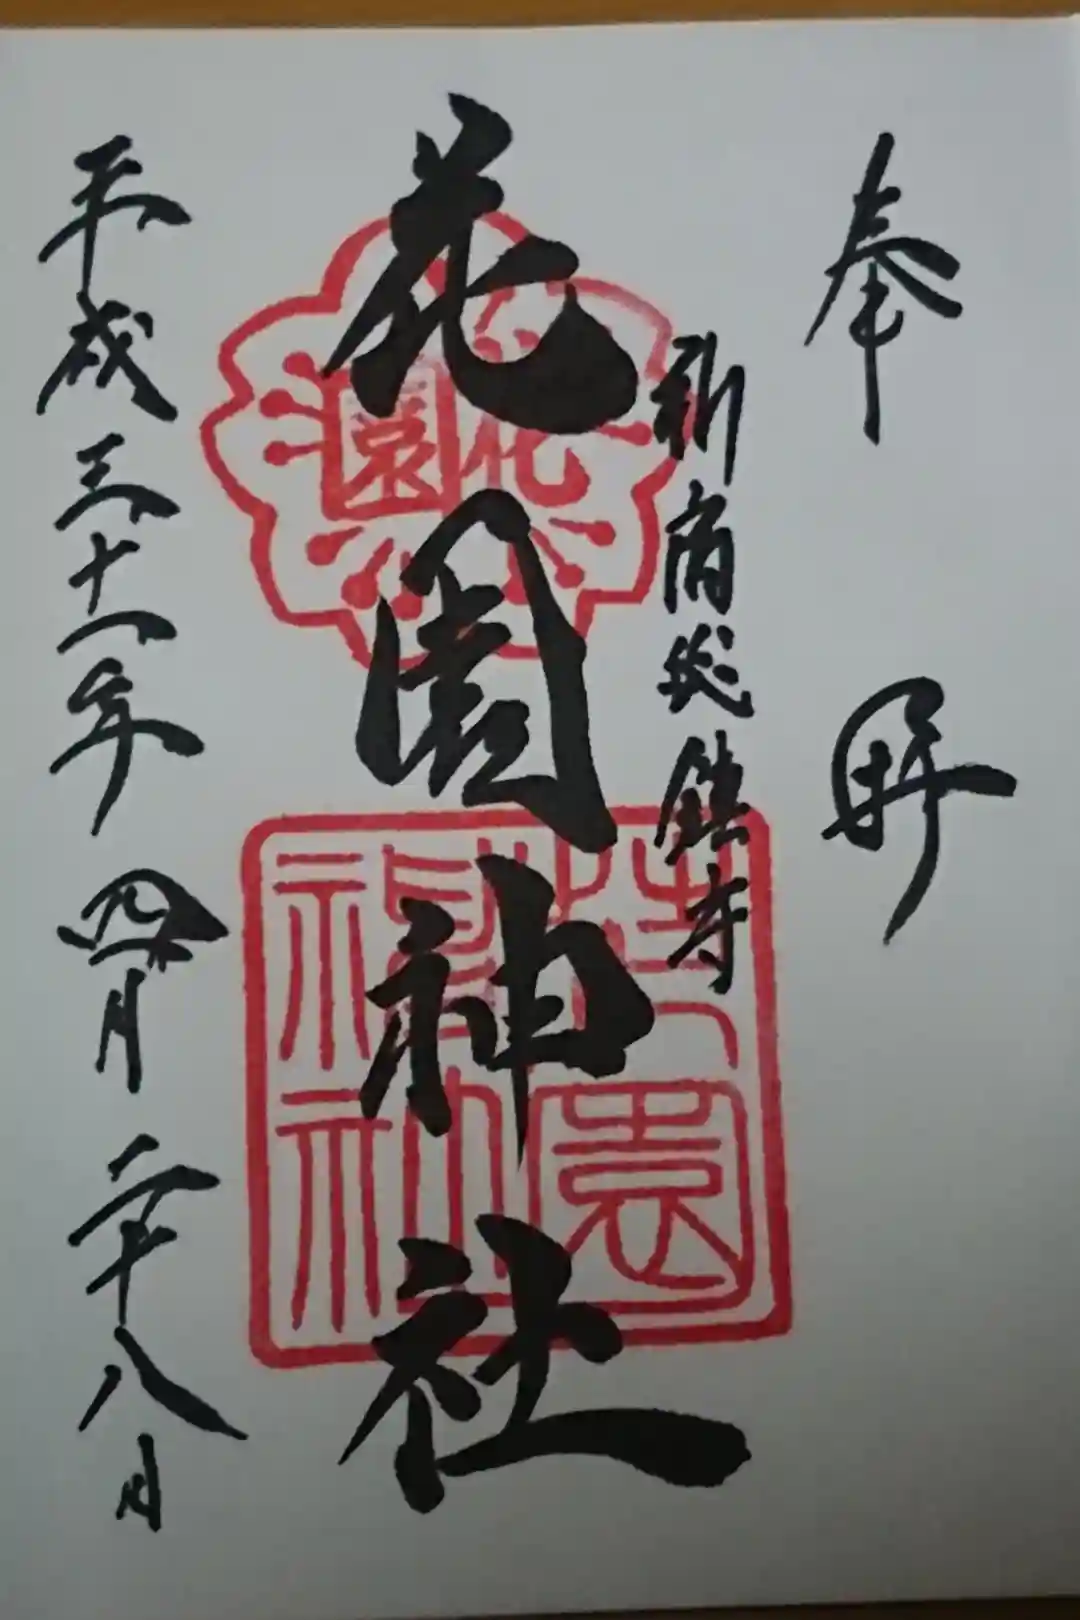 奉拝
新宿総鎮守
花園神社
花園
花園神社
平成三十一年四月二十八日